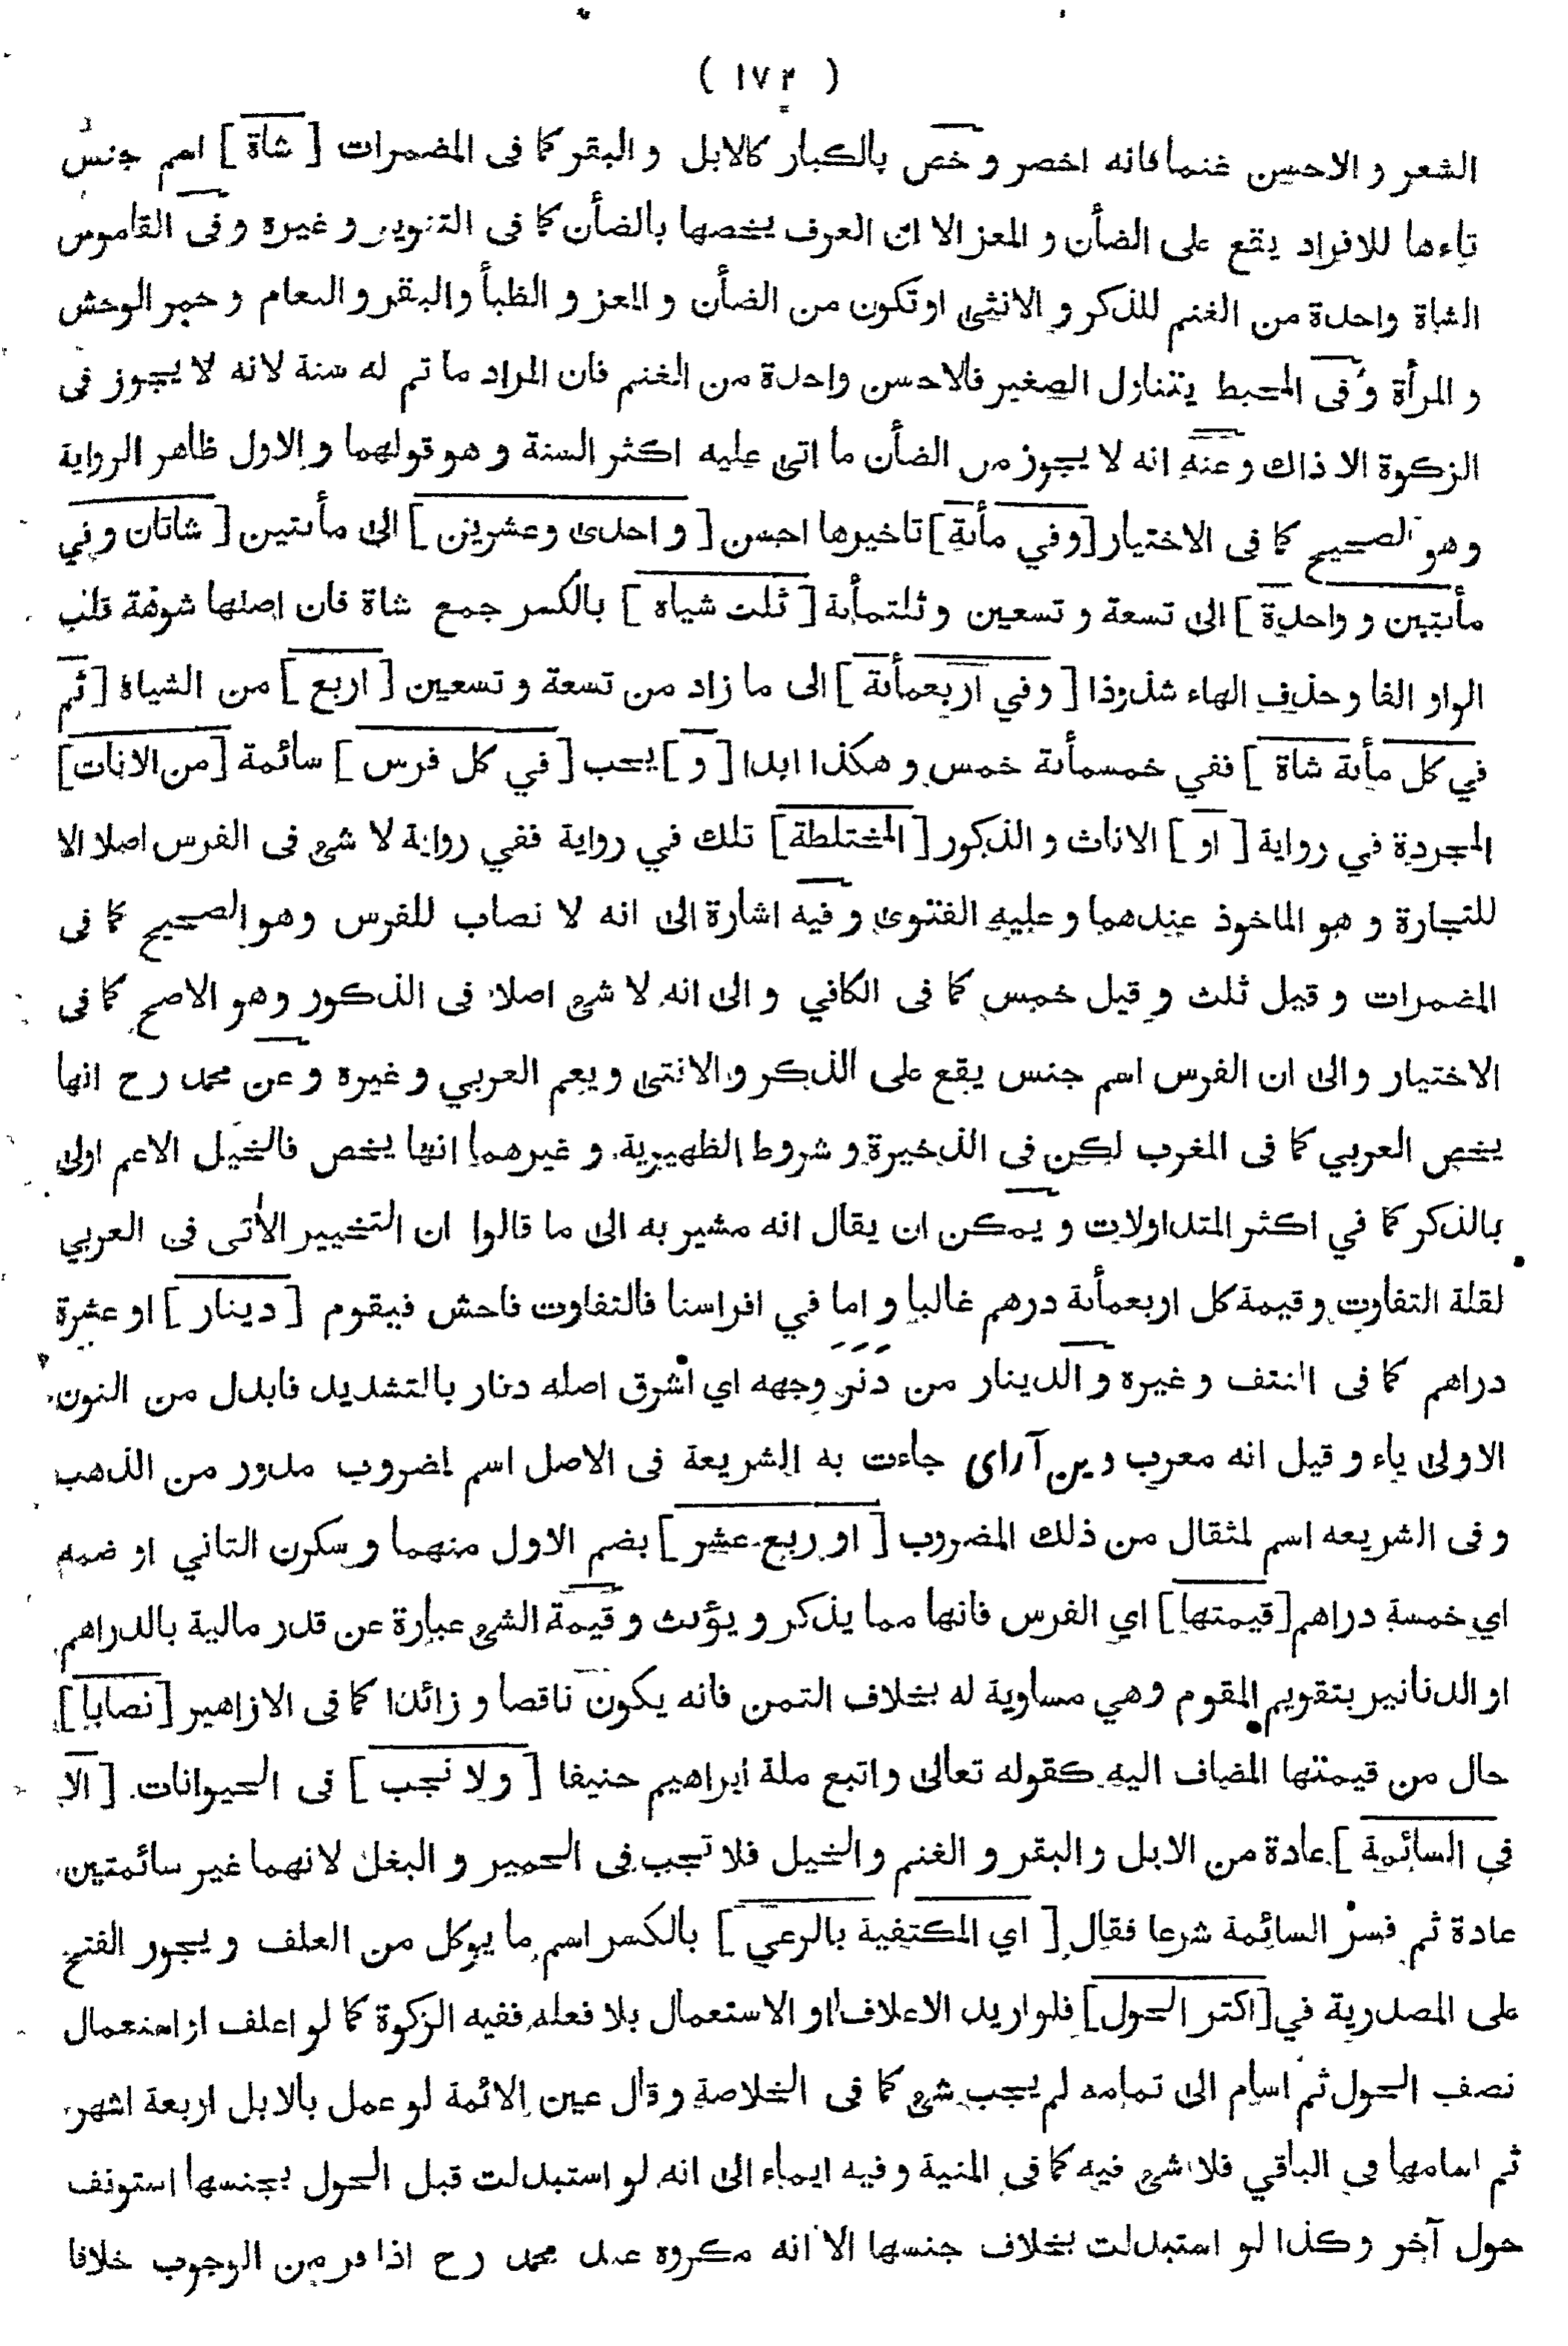 ( ١٧٣ )
الشعر و الاحسن غنما فانه اخصر و خص بالكبار كالابل و البقر كما فى المضمرات [ شاة ] اسم جنس
تاءها للافراد يقع على الضأن و المعز الا ان العرف يخصها بالضأن كما فى التنوير و غيرة و فى القاموس
الشاة واحدة من الغنم للذكر و الانثى او تكون من الضأن و المعز و الظبأ والبقر و النعام و حمر الوحش
و المرأة و فى المحيط يتناول الصغير فالاحسن واحدة من الغنم فان المراد ما تم له سنة لانه لا يجوز فى
الزكوة الا ذاك و عنه انه لا يجوز من الضأن ما اتى عليه اكثر السنة و هو قولهما و الاول ظاهر الرواية
و هو الصحيح كما فى الاختيار [و في مأئة] تاخيرها احسن [ و احدى وعشرين ] الى مأتين [ شاتان و في
مأتين و واحدة ] الى تسعة و تسعين و ثلثمأية [ ثلث شياه ] بالكسر جمع شاة فان اصلها شوهة قلب
الواو الفا و حذف الهاء شذوذا [ و في اربعمأة ] الى ما زاد من تسعة و تسعين [ اربع ] من الشياة [ ثم
في كل مأية شاة ] ففي خمسمأية خمس و هكذا ابدا [ و ] يجب [ في كل فرس ] سائمة [من الاناث]
المجردة في رواية [ او ] الاناث و الذكور [المختلطة] تلك في رواية ففي رواية لا شىء فى الفرس اصلا الا
للتجارة و هو الماخوذ عندهما و عليه الفتوى و فيه اشارة الى انه لا نصاب للفرس وهو الصحيح كما فى
المضمرات و قيل ثلث و قيل خمس كما فى الكافي و الى انه لا شىء اصلا فى الذكور و هو الاصح كما فى
الاختيار و الى ان الفرس اسم جنس يقع على الذكر و الانثى و يعم العربي و غيره و عن محمد رح انها
يخص العربي كما فى المغرب لكن فى الذخيرة و شروط الظهيرية و غيرهما انها يخص فالخيل الاعم اولى
بالذكر كما في اكثر المتداولات و يمكن ان يقال انه مشير به الى ما قالوا ان التخيير الأتى فى العربي
لقلة التفاوت و قيمة كل اربعمأية درهم غالبا و اما في افراسنا فالتفاوت فاحش فيقوم [ دينار ] او عشرة
دراهم كما فى النتف و غيره و الدينار من دنر وجهه اي اشرق اصله دنار بالتشديد فابدل من النون
الاولى ياء و قيل انه معرب دين آراى جاءت به الشريعة فى الاصل اسم لمضروب مدور من الذهب
و فى الشريعه اسم لمثقال من ذلك المضروب [ او ربع عشر ] بضم الاول منهما و سكون الثاني او ضمه
اي خمسة دراهم [ قيمتها ] اي الفرس فانها مما يذكر و يؤنث و قيمة الشىء عبارة عن قدر مالية بالدراهم
او الدنانير بتقويم المقوم وهي مساوية له بخلاف الثمن فانه يكون ناقصا و زائدا كما فى الازاهير [نصابا]
حال من قيمتها المضاف اليه كقوله تعالى و اتبع ملة ابراهيم حنيفا [ و لا تجب ] فى الحيوانات [ الا
فى السائمة ] عادة من الابل و البقر و الغنم و الخيل فلا تجب فى الحمير و البغل لانهما غير سائمتين
عادة ثم فسر السائمة شرعا فقال [ اي المكتفية بالرعي ] بالكسر اسم ما يوكل من العلف و يجوز الفتح
على المصدرية في [اكثر الحول] فلو اريد الاعلاف او الاستعمال بلا فعله ففيه الزكوة كما لو اعلف او استعمال
نصف الحول ثم اسام الى تمامه لم يجب شىء كما فى الخلاصة و قال عين الائمة لو عمل بالابل اربعة اشهر
ثم اسامها في الباقي فلا شىء فيه كما فى المنية و فيه ايماء الى انه لو استبدلت قبل الحول بجنسها استونف
حول آخر و كذا لو استبدلت بخلاف جنسها الا انه مكروه عند محمد رح اذا فر من الوجوب خلافا